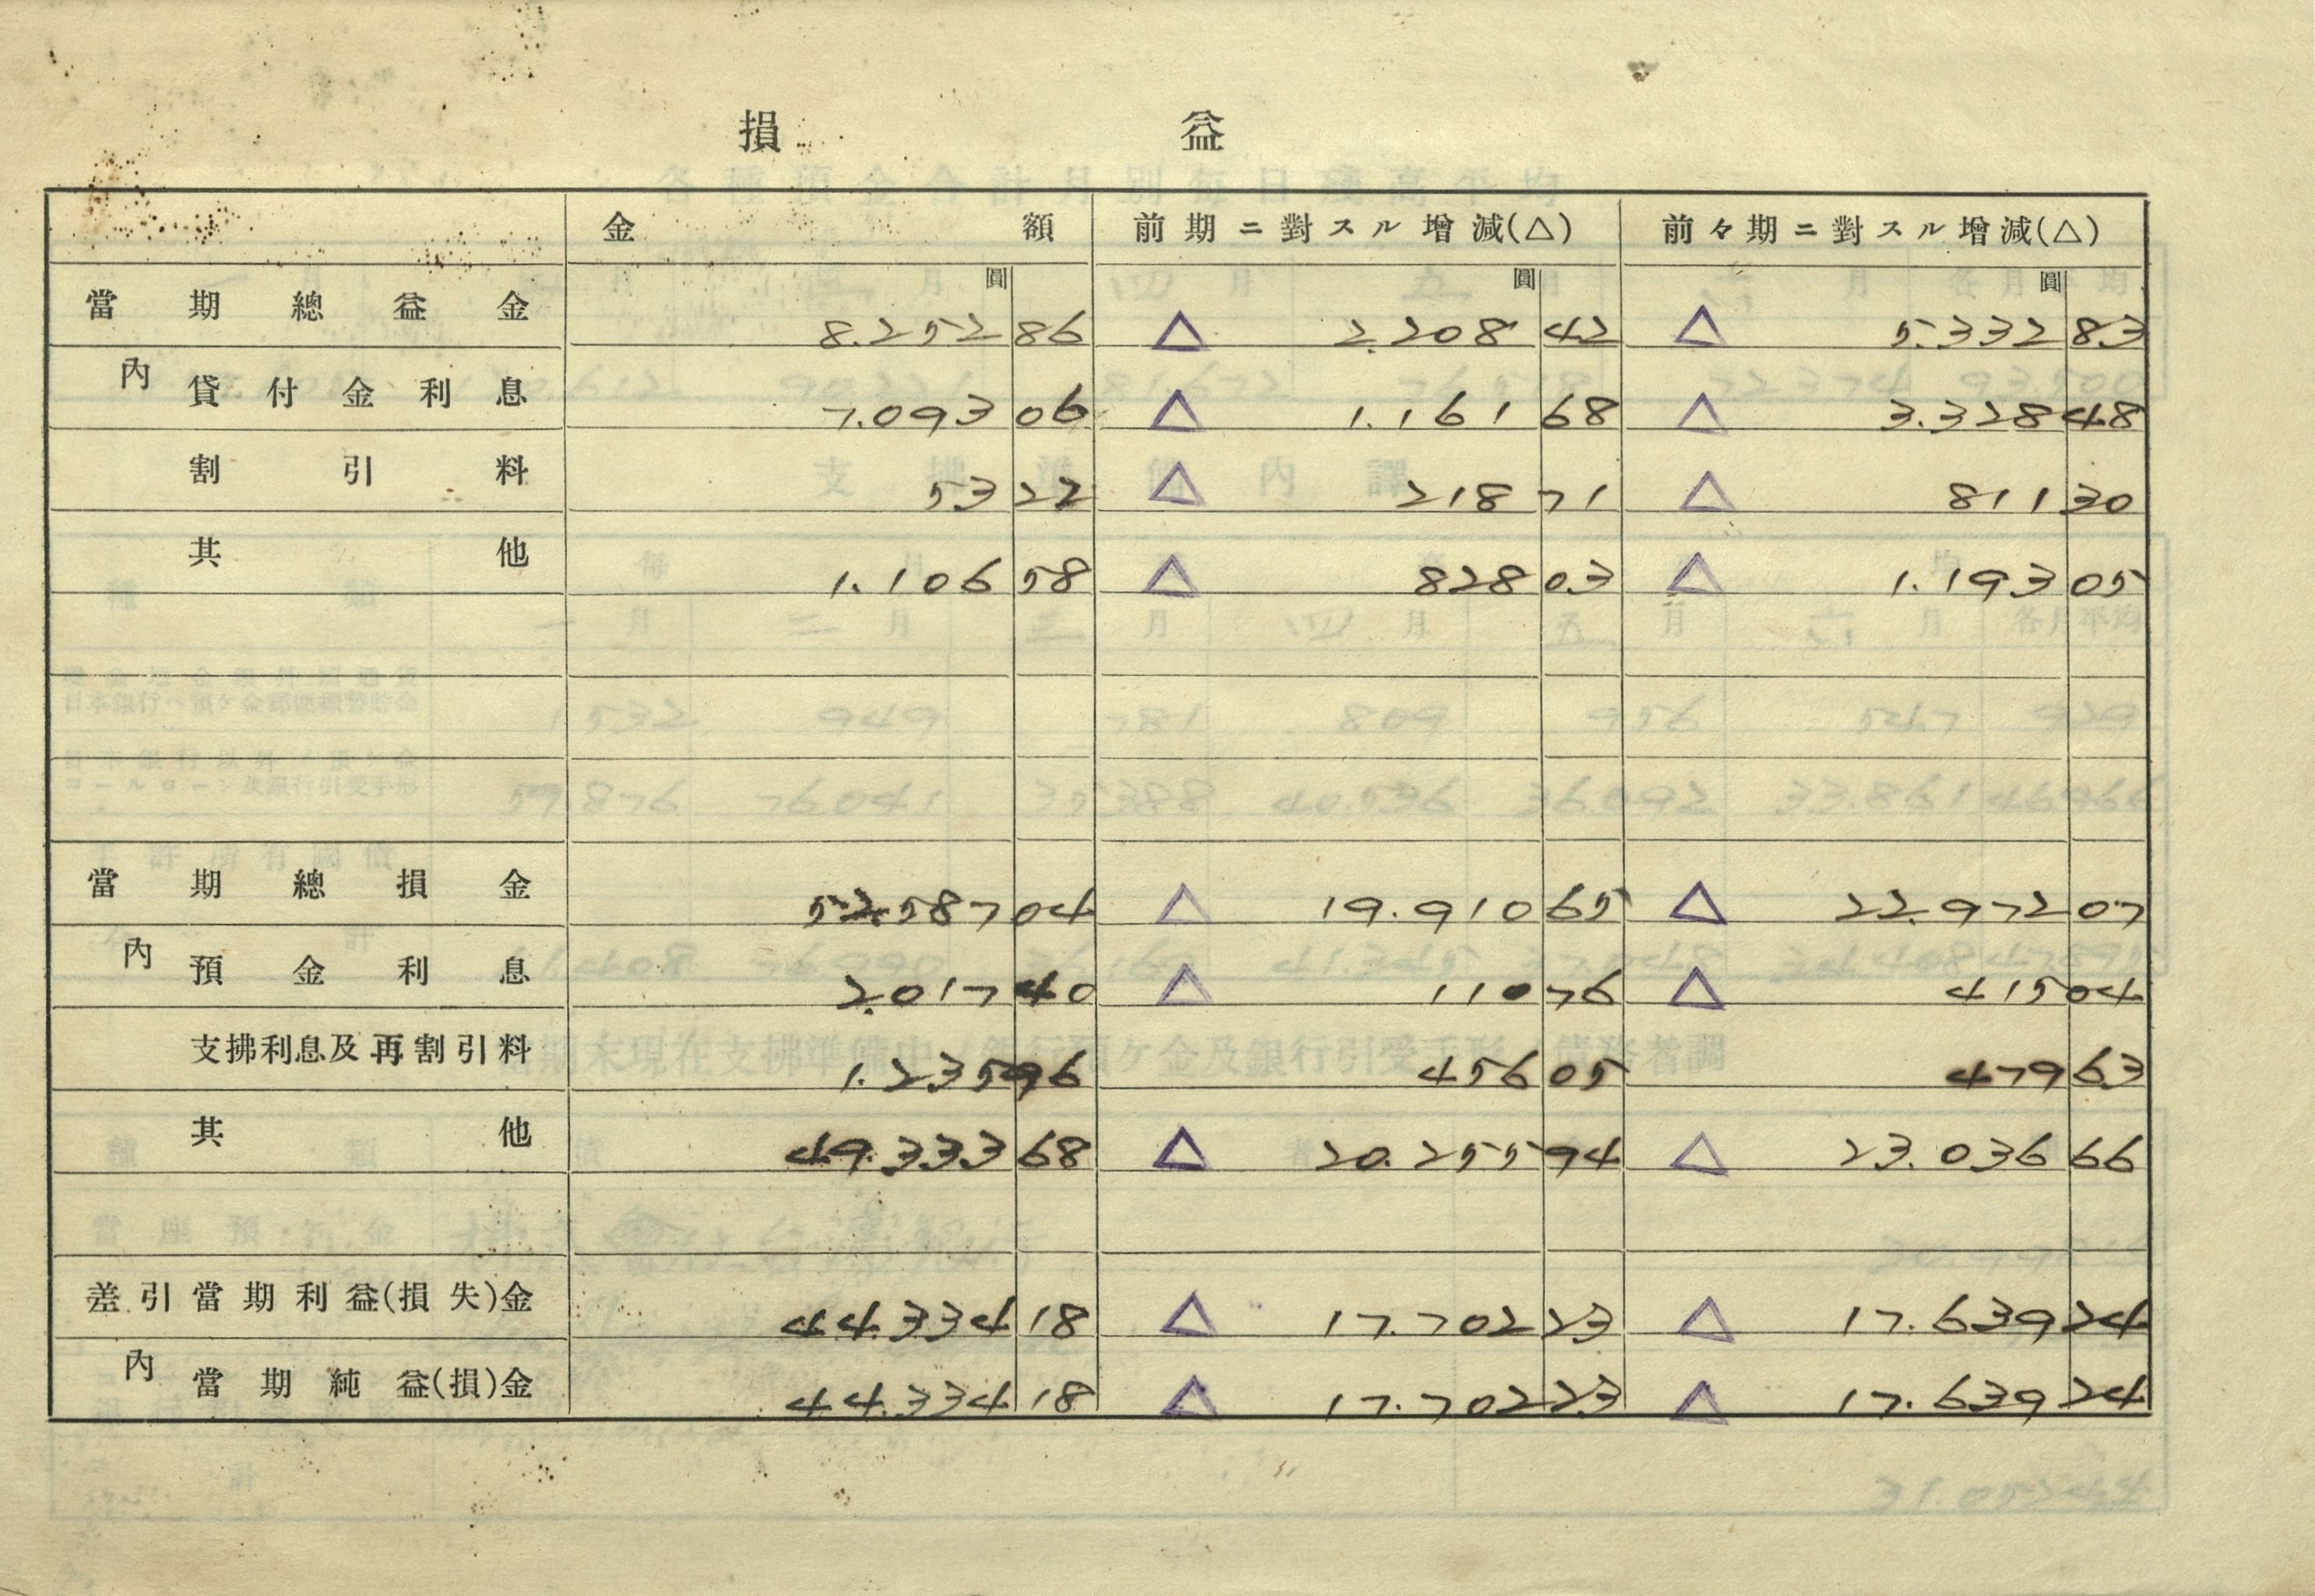 損益
金額 前期ニ對スル增減(△) 前々期ニ對スル增減(△)
圓 圓 圓
當期總益金 8.252 86 △ 2.208 42 △ 5.332 83
內 貸付金利息 7.093 06 △ 1.161 68 △ 3.328 48
割引料 53 22 △ 218 71 △ 811 30
其他 1.106 58 △ 828 03 △ 1.193 05
當期總損金 52.587 04 △ 19.910 65 △ 22.972 07
內 預金利息 2.017 40 △ 110 76 △ 415 04
支拂利息及再割引料 1.235 96 456 05 479 63
其他 49.333 68 △ 20.255 94 △ 23.036 66
差引當期利益(損失)金 44.334 18 △ 17.702 23 △ 17.639 24
內 當期純益(損)金 44.334 18 △ 17.702 23 △ 17.639 24